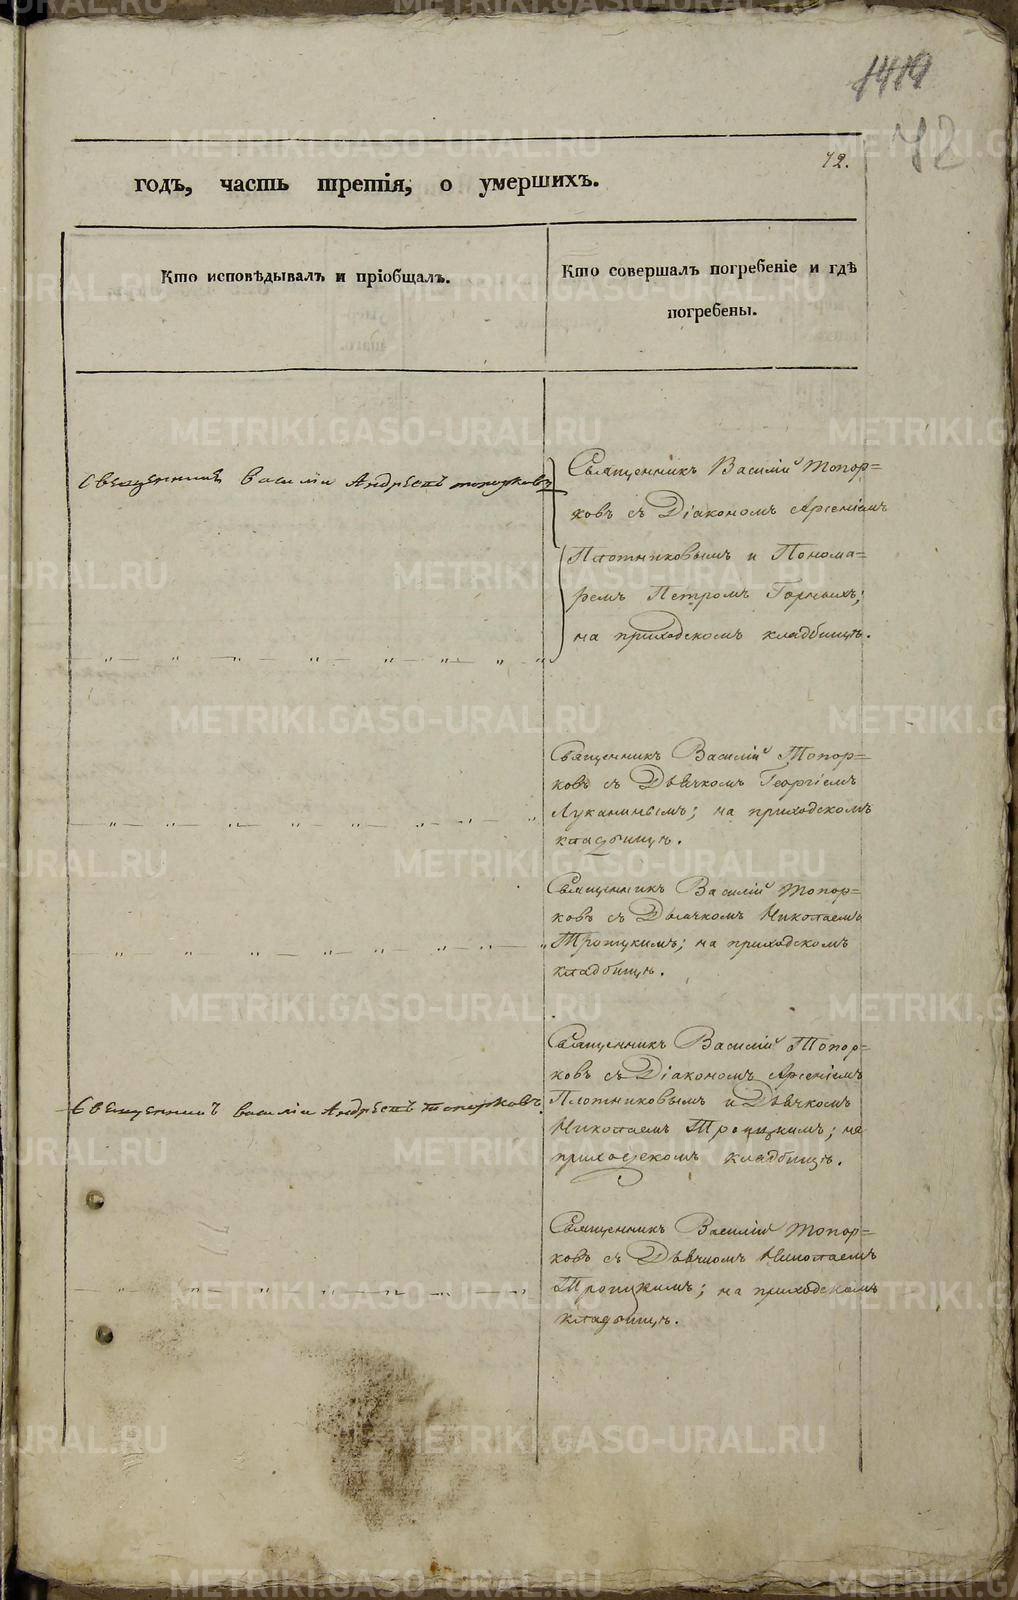 1419
42
42.
годъ, часть третія, о умершихъ.
Кто исповѣдывалъ и пріобщалъ.
Кто совершалъ погребеніе и гдѣ
погребены.
Священникъ Василій Андреевъ топорковъ
Священникъ Василій Топор=
ковъ съ Діакономъ Арсеніемъ
Плотниковымъ и Понома=
ремъ Петромъ Горныхъ;
на приходскомъ кладбищѣ.
Священникъ Василій Топор=
ковъ съ Дьячкомъ Георгіемъ
Луканинымъ; на приходскомъ
кладбищѣ.
Священникъ Василій Топор=
ковъ съ Дьячкомъ Николаемъ
Троицкимъ; на приходскомъ
кладбищѣ.
Священникъ Василій Андреевъ топорковъ
Священникъ Василій Топор=
ковъ съ Діакономъ Арсеніемъ
Плотниковымъ и Дьячкомъ
Николаемъ Троицкимъ; на
приходскомъ кладбищѣ.
Священникъ Василій Топор=
ковъ съ Дьячкомъ Николаемъ
Троицкимъ; на приходскомъ
кладбищѣ.
METRIKI.GASO-URAL.RU